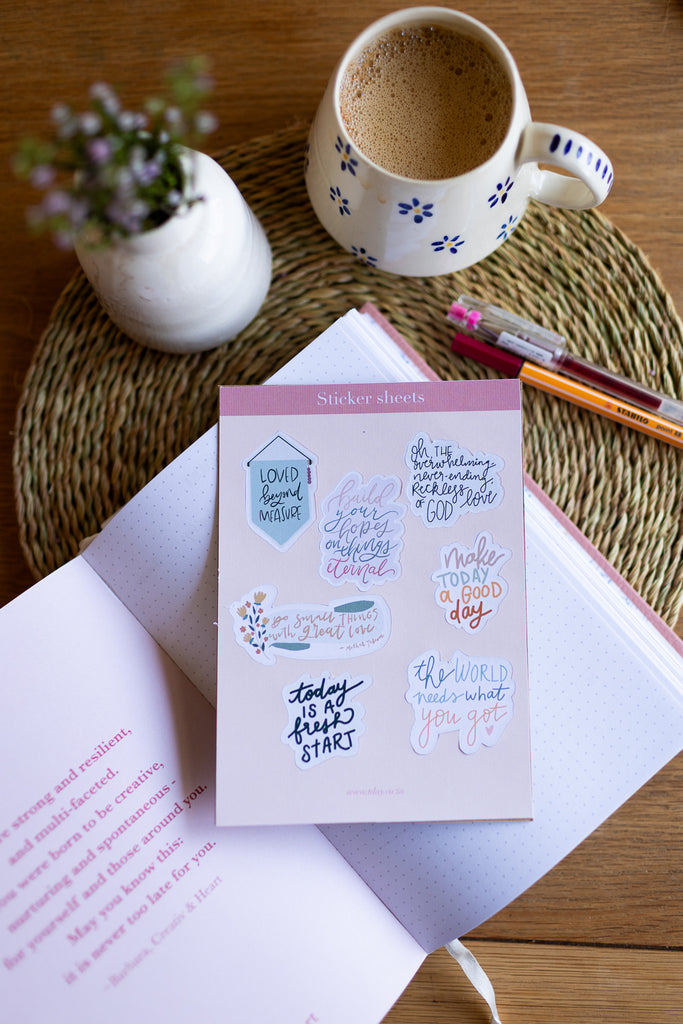 Sticker sheets
LOVED
beyond
MEASURE
Build
your
hopes
on things
eternal
Oh, THE
overwhelming
never-ending
RECKLESS
love
OF GOD
make
TODAY
a GOOD
day
Do small THINGS
with great love
today
IS A
fresh
START
the WORLD
needs what
you got
STABILO point 88
strong and resilient,
and multi-faceted.
were born to be creative,
nurturing and spontaneous -
for yourself and those around you.
May you know this:
it is never too late for you.
- Barbara, Creativ & Heart